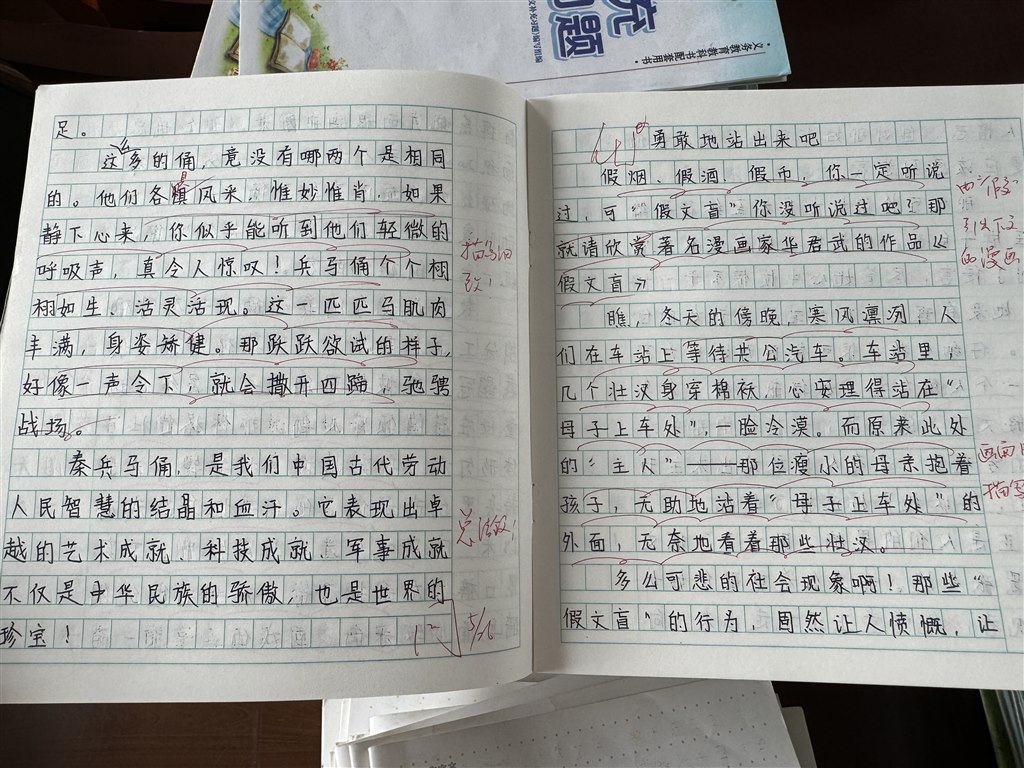 充
习题
义务教育教科书配套用书
足。
这么多的俑，竟没有哪两个是相同
的。他们各具风采，惟妙惟肖。如果
静下心来，你似乎能听到他们轻微的
呼吸声，真令人惊叹！兵马俑个个栩
栩如生、活灵活现。这一匹匹马肌肉
丰满，身姿矫健。那跃跃欲试的样子，
好像一声令下，就会撒开四蹄，驰骋
战场。
秦兵马俑，是我们中国古代劳动
人民智慧的结晶和血汗。它表现出卓
越的艺术成就、科技成就、军事成就
不仅是中华民族的骄傲，也是世界的
珍宝！
描写细
致！
总结段！
勇敢地站出来吧
假烟、假酒、假币，你一定听说
过，可“假文盲”你没听说过吧？那
就请欣赏著名漫画家华君武的作品《
假文盲》
瞧，冬天的傍晚，寒风凛冽，人
们在车站上等待共公汽车。车站里，
几个壮汉身穿棉袄，心安理得站在“
母子上车处”，一脸冷漠。而原来此处
的“主人”——那位瘦小的母亲抱着
孩子，无助地站着“母子上车处”的
外面，无奈地看着那些壮汉。
多么可悲的社会现象啊！那些“
假文盲”的行为，固然让人愤慨，让
由“假”
引出下文
画漫画
画面
描写